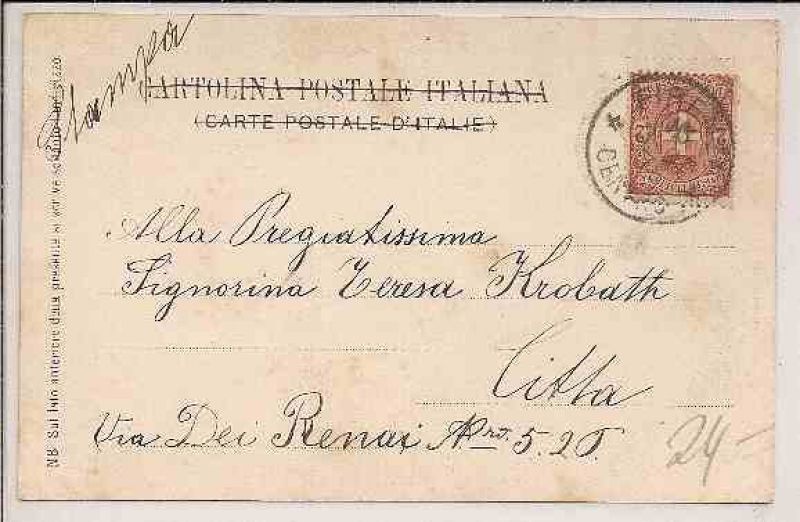 Stampa
CARTOLINA POSTALE ITALIANA
(CARTE POSTALE D'ITALIE)
CENTRO
Alla Pregiatissima
Signorina Teresa Krobath
Citta
Via Dei Renai Nro. 5. 2°P.
24-
NB Sul lato anteriore della presente si scrive soltanto l'indirizzo.